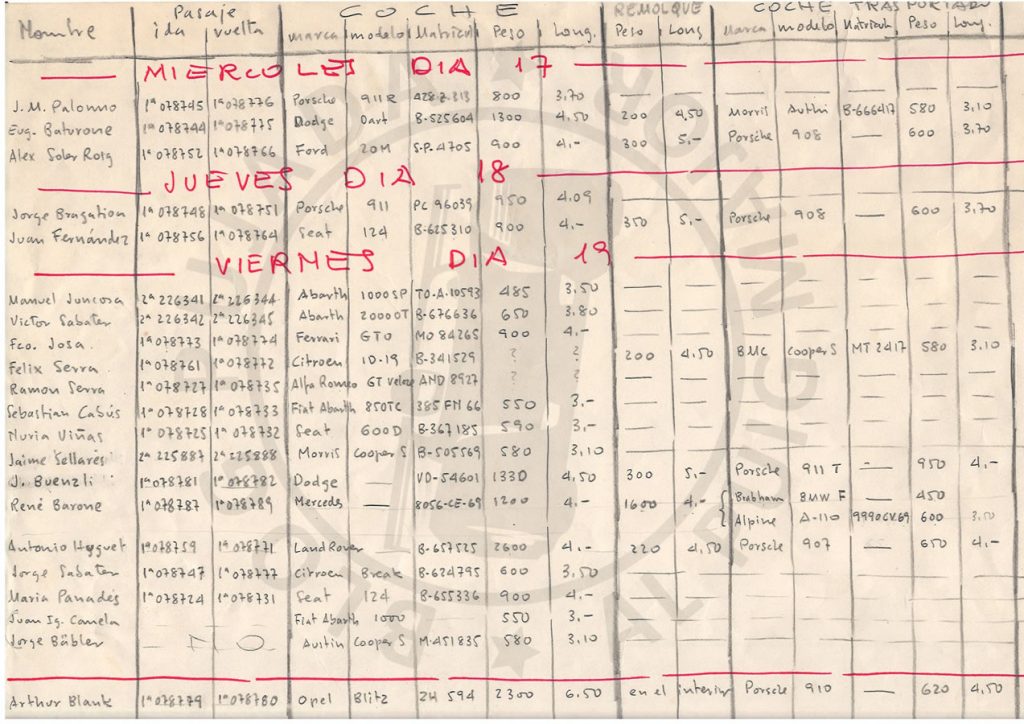 Pasaje COCHE REMOLQUE COCHE TRASPORTADO
Nombre ida vuelta marca modelo Matricul Peso Long. Peso Long Marca modelo Matricula Peso Long.
MIERCOLES DIA 17
J. M. Palomo 1ª 078745 1ª 078776 Porsche 911R 428-Z-313 800 3.70 — — — — — — —
Eug. Baturone 1ª 078744 1ª 078775 Dodge Dart B-525604 1300 4,50 200 4,50 Morris Authi B-666417 580 3,10
Alex Soler Roig 1ª 078752 1ª 078766 Ford 20M S.P. 4705 900 4.- 300 5,- Porsche 908 — 600 3,70
JUEVES DIA 18
Jorge Bragation 1ª 078748 1ª 078751 Porsche 911 PC 96039 950 4.09
Juan Fernández 1ª 078756 1ª 078764 Seat 124 B-625310 900 4.- 350 5,- Porsche 908 — 600 3,70
VIERMES DIA 19
Manuel Juncosa 2ª 226341 2ª 226344 Abarth 1000SP TO-A-10593 485 3,50 — — — — — — —
Victor Sabater 2ª 226342 2ª 226345 Abarth 2000OT B-676636 650 3.80 — — — — — — —
Fco. Josa. 1ª 078773 1ª 078774 Ferrari GTO MO 84265 900 4.- — — — — — — —
Felix Serra 1ª 078761 1ª 078772 Citroen ID-19 B-341529 ? ? 200 4,50 BMC Cooper S MT 2417 580 3.10
Ramon Serra 1ª 078727 1ª 078735 Alfa Romeo GT Veloze AND 8927 ? ? — — — — — — —
Sebastian Cabús 1ª 078728 1ª 078733 Fiat Abarth 850TC 385 FN 66 550 3.- — — — — — — —
Nuria Viñas 1ª 078725 1ª 078732 Seat 600D B-367185 590 3,- — — — — — — —
Jaime Sellarés 2ª 225887 2ª 225888 Morris Cooper S B-505569 580 3,10
J. Buenzli 1ª 078781 1ª 078782 Dodge — VD-54601 1330 4,50 300 5,- Porsche 911 T — 950 4.-
René Barone 1ª 078787 1ª 078789 Mercedes — 8056-CE-69 1200 4.- 1600 4.- Brabham BMW F — 450
Alpine A-110 9990CV69 600 3,50
Antonio Huguet 1ª 078759 1ª 078771 Land Rover B-657525 2600 4.- 220 4,50 Porsche 907 — 650 4.-
Jorge Sabater 1ª 078747 1ª 078777 Citroen Break B-624795 600 3,50
Maria Panadés 1ª 078724 1ª 078731 Seat 124 B-655336 900 4.-
Juan Ig. Canela Fiat Abarth 1000 550 3.-
Jorge Bäbler — NO — Austin Cooper S M-451835 580 3,10
Arthur Blank 1ª 078779 1ª 078780 Opel Blitz ZH 594 2300 6.50 en el interior Porsche 910 — 620 4,50